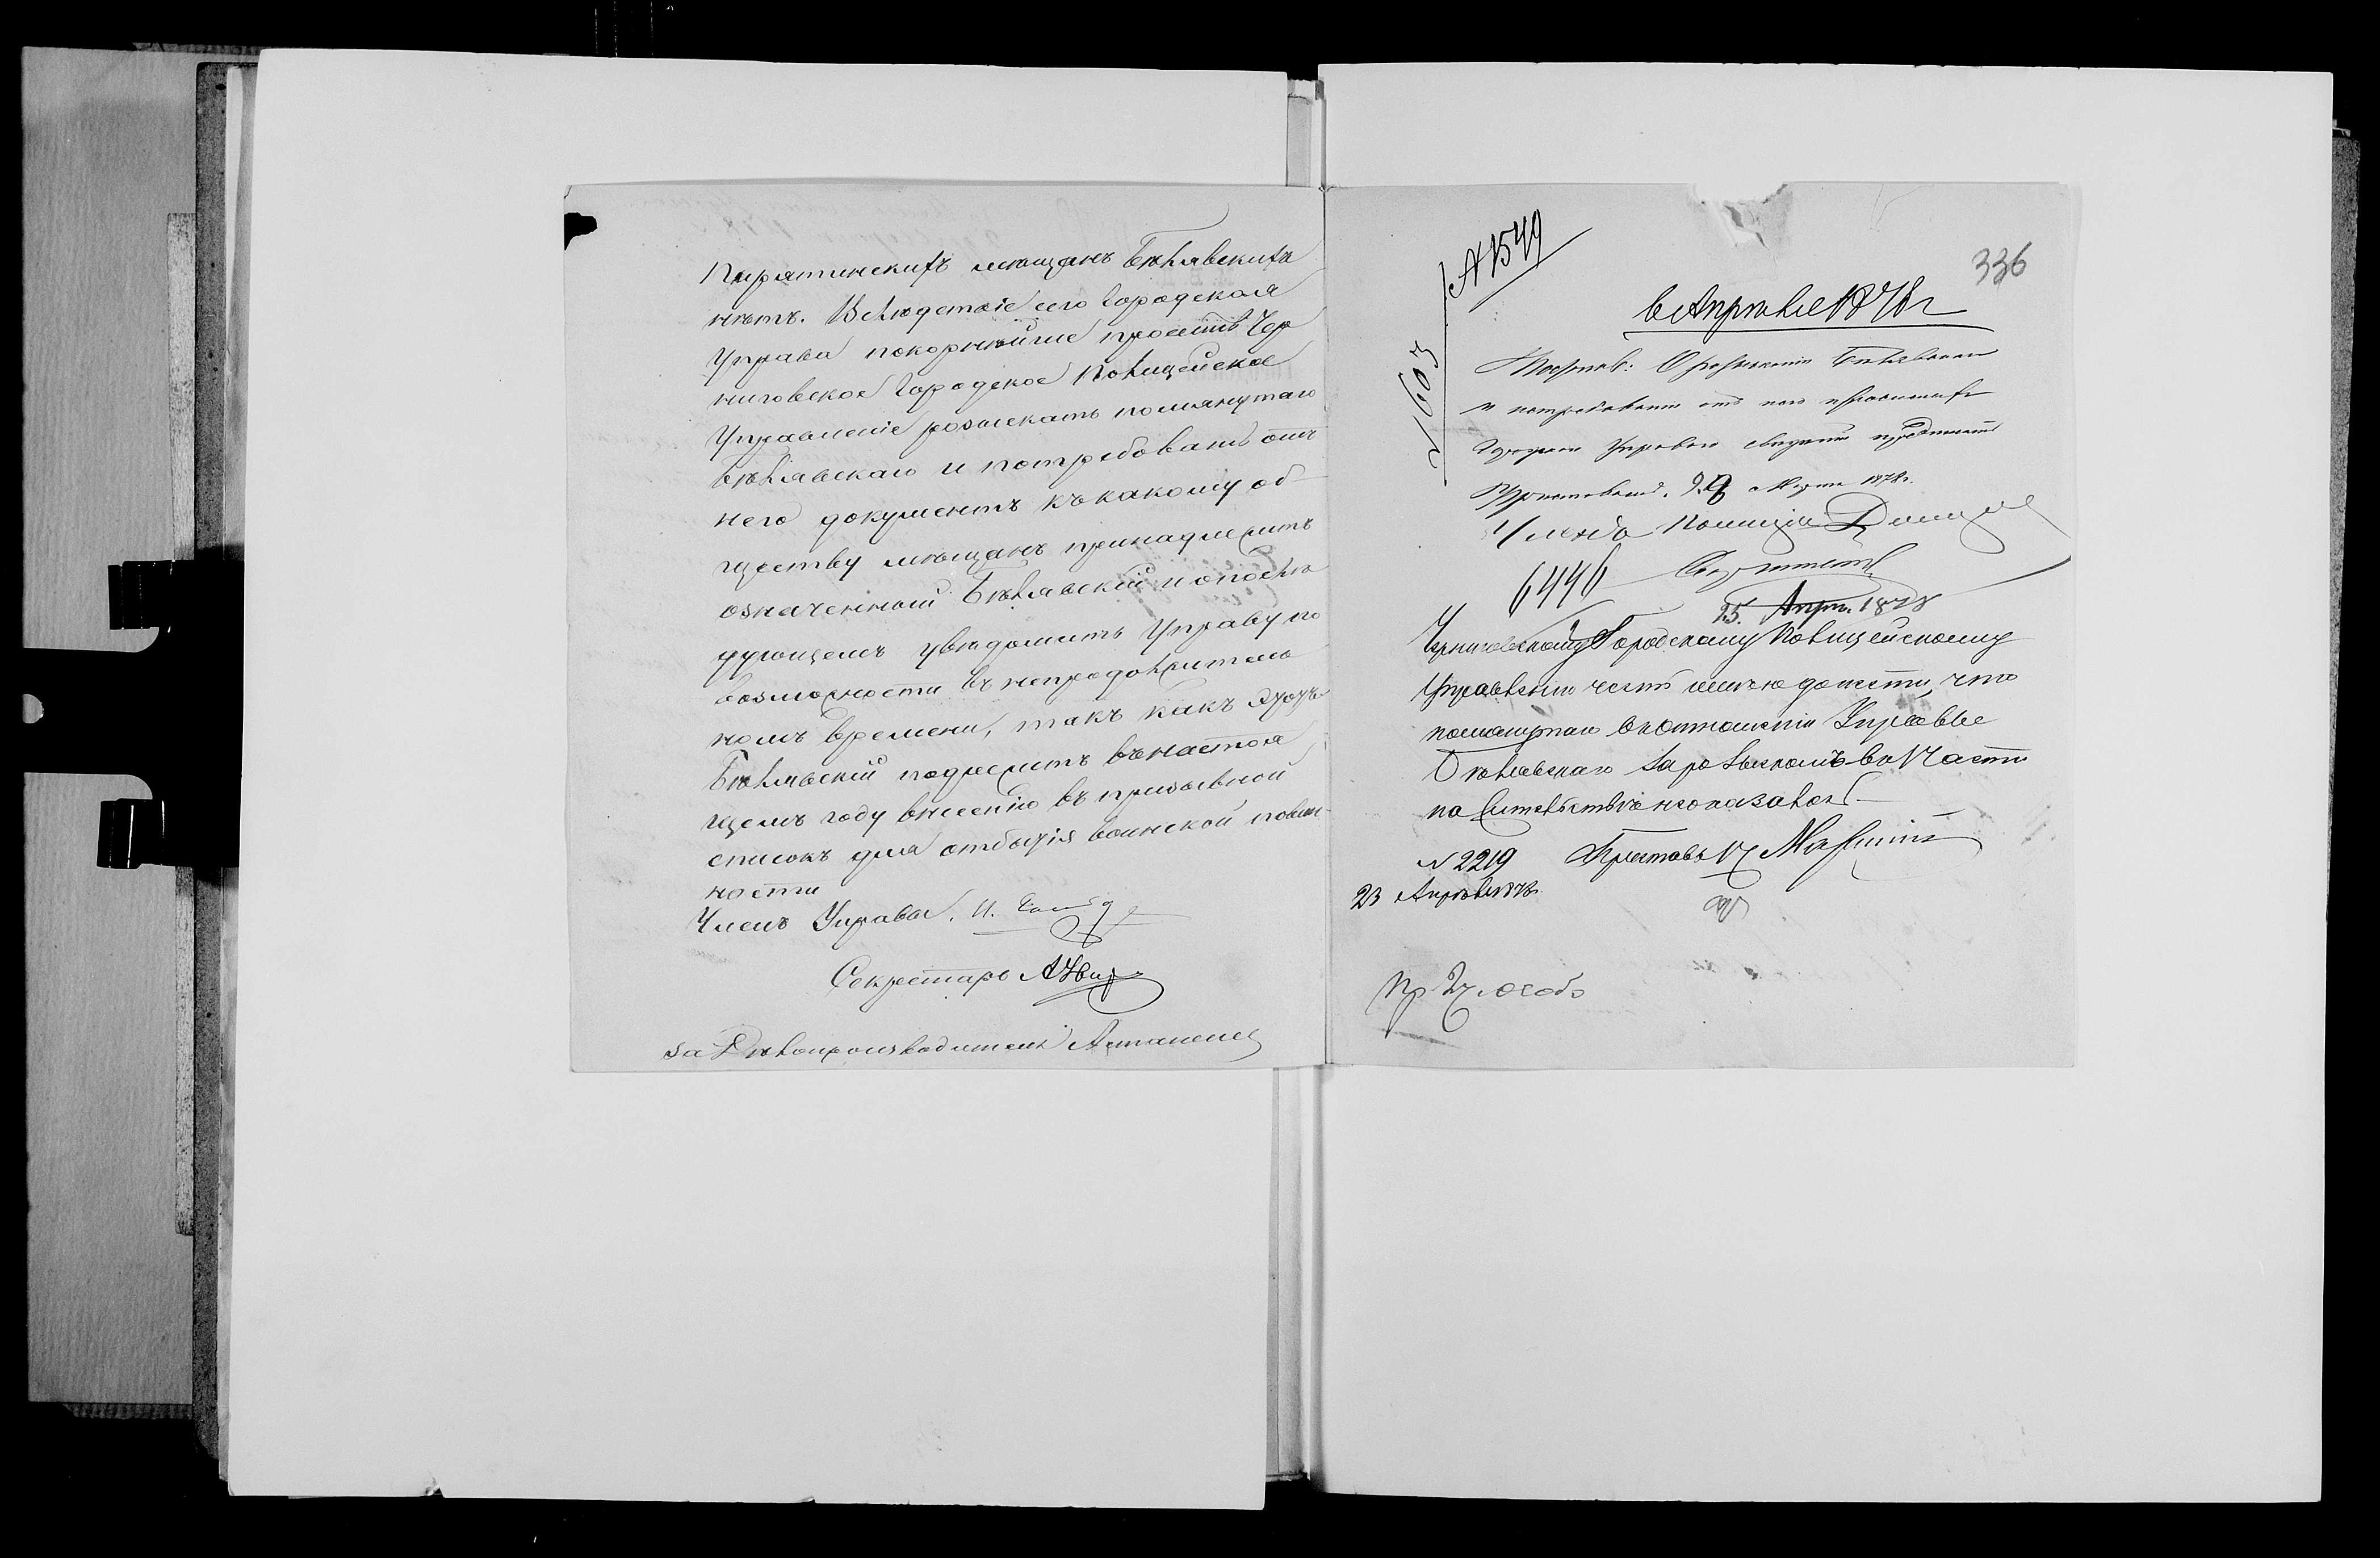 Пирятинскихъ мѣщанъ Бѣлявскихъ
нѣтъ. Вслѣдствіе сего Городская
Управа покорнѣйше проситъ Чер
ниговское Городское Полицейское
Управленіе розыскать помянутаго
Бѣлявскаго и потребовать отъ
него документъ къ какому об
ществу мѣщанъ принадлежитъ
означенный Бѣлявскій и о послѣ
дующемъ увѣдомить Управу по
возможности въ непродолжитель
номъ времени, такъ какъ
Бѣлявскій подлежитъ въ настоя
щемъ году внесенію въ призывной
списокъ для отбытія воинской повин
ности
Членъ Управы, И.
Секретарь А
За Дѣлопроизводителя
№ 1549
1603
336
6 Апрѣля 1878 г
О розысканіи Бѣлявскаго
и потребовании отъ него
Управою
29 Марта 1878 г.
Полиціи
6446
25 Апрѣ. 1878
Черниговскому Городскому Полицейскому
Управленію честь имѣю донести, что
помянутаго въ отношеніи Управы
Бѣлявскаго за розыскомъ во 2 части
на жительствѣ не оказалось
№ 2219 Приставъ 2 ч
23 Апрѣля 1878 г.